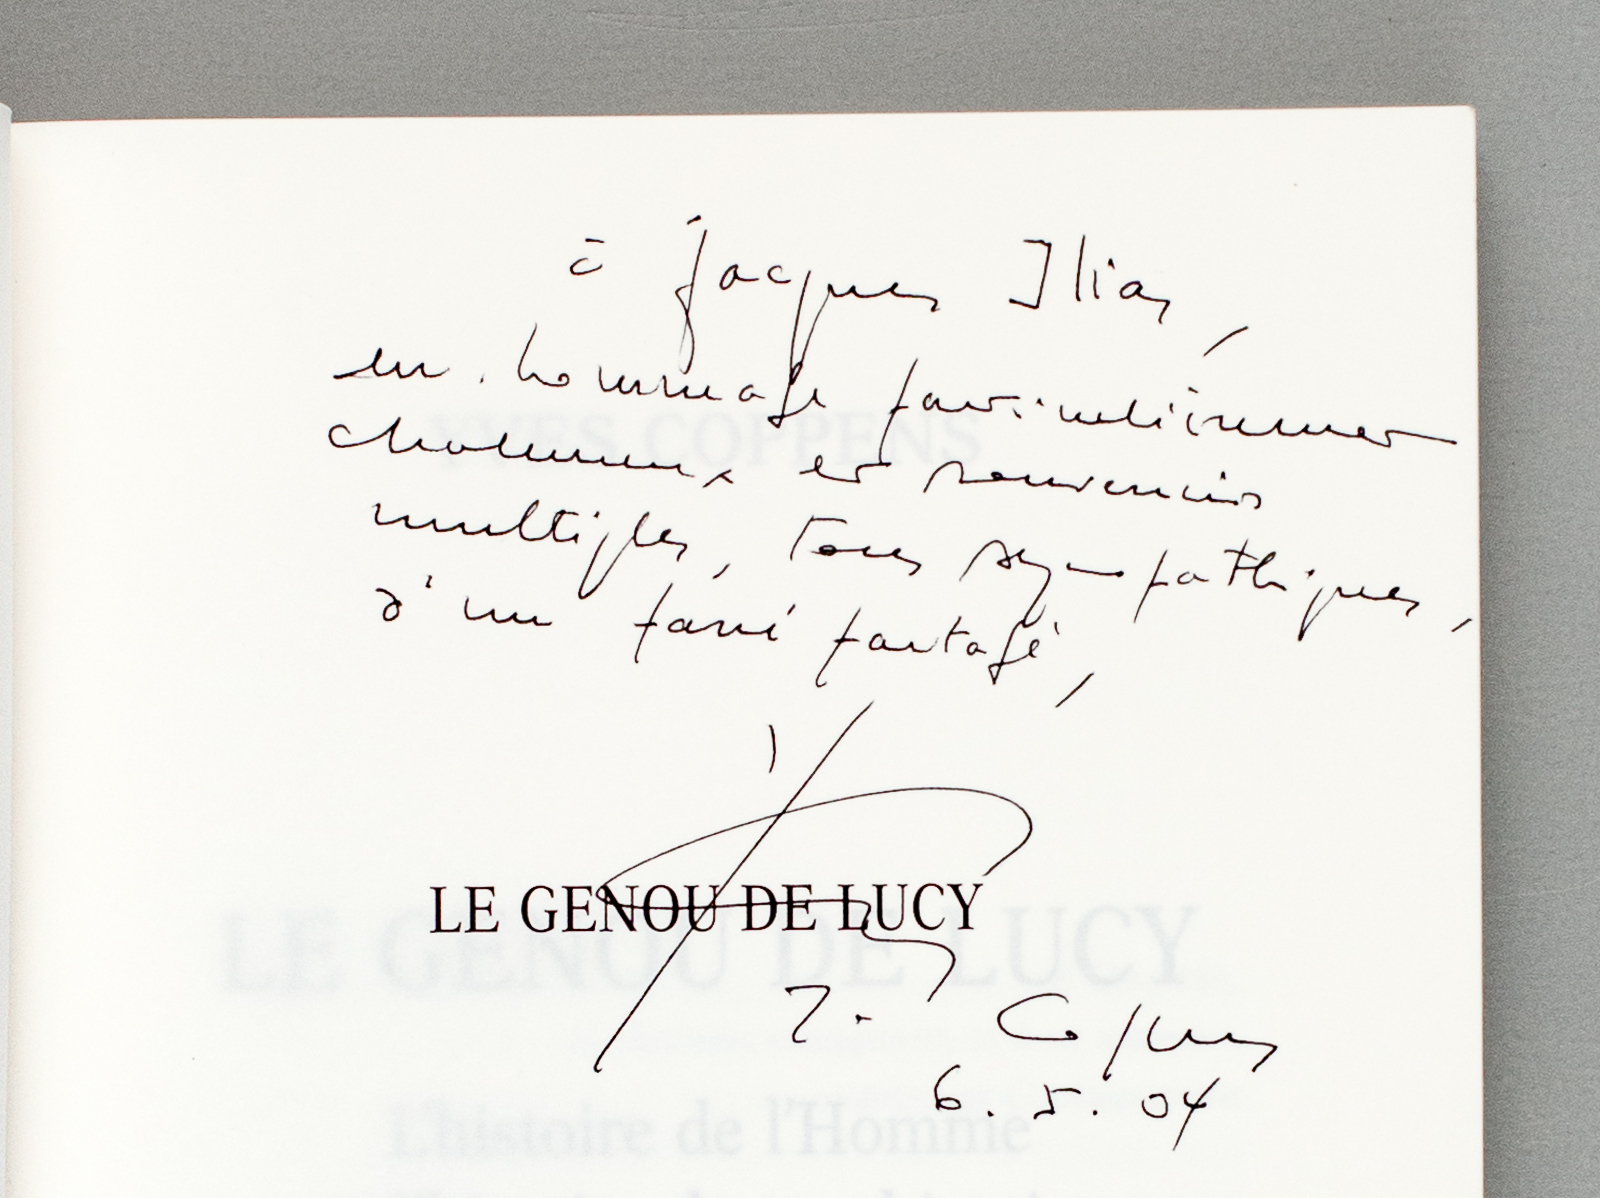 à Jacques Ilias,
en hommage particulièrement
chaleureux et souvenirs
multiples, tous sympathiques,
d'un passé partagé,
LE GENOU DE LUCY
Y. Coppens
6.5.04
YVES COPPENS
LE GENOU DE LUCY
L'histoire de l'Homme